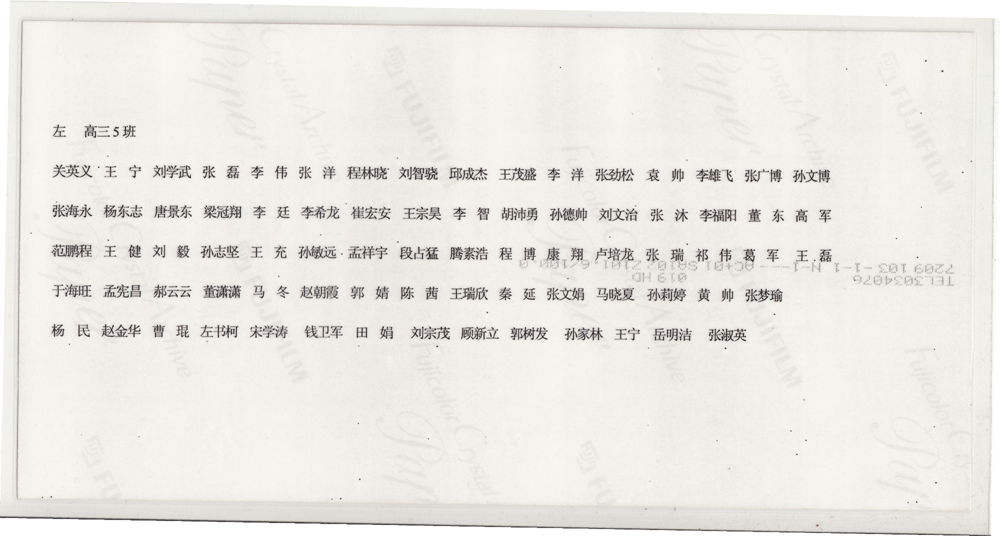 左 高三5班
关英义 王 宁 刘学武 张 磊 李 伟 张 洋 程林晓 刘智骁 邱成杰 王茂盛 李 洋 张劲松 袁 帅 李雄飞 张广博 孙文博
张海永 杨东志 唐景东 梁冠翔 李 廷 李希龙 崔宏安 王宗昊 李 智 胡沛勇 孙德帅 刘文治 张 沐 李福阳 董 东 高 军
范鹏程 王 健 刘 毅 孙志坚 王 充 孙敏远 孟祥宇 段占猛 腾素浩 程 博 康 翔 卢培龙 张 瑞 祁 伟 葛 军 王 磊
于海旺 孟宪昌 郝云云 董潇潇 马 冬 赵朝霞 郭 婧 陈 茜 王瑞欣 秦 延 张文娟 马晓夏 孙莉婷 黄 帅 张梦瑜
杨 民 赵金华 曹 琨 左书柯 宋学涛 钱卫军 田 娟 刘宗茂 顾新立 郭树发 孙家林 王宁 岳明洁 张淑英
FUJIFILM
Fujicolor Crystal Archive Paper